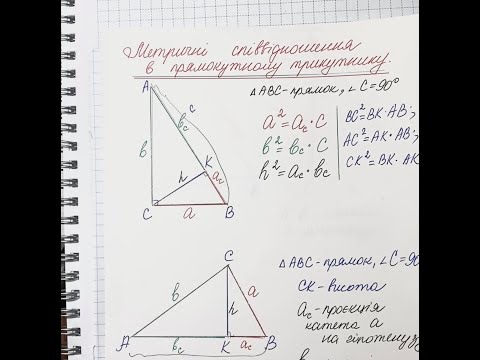 Метричні співвідношення
в прямокутному трикутнику.
△ABC-прямок, ∠C=90°
a²=a_c·c
b²=b_c·c
h²=a_c·b_c
BC²=BK·AB;
AC²=AK·AB;
CK²=BK·AK
A
c
b_c
b
K
h
a_c
C
a
B
△ABC-прямок, ∠C=90
CK-висота
a_c-проєкція
катета a
на гіпотену
C
b
h
a
A
b_c
K
a_c
B